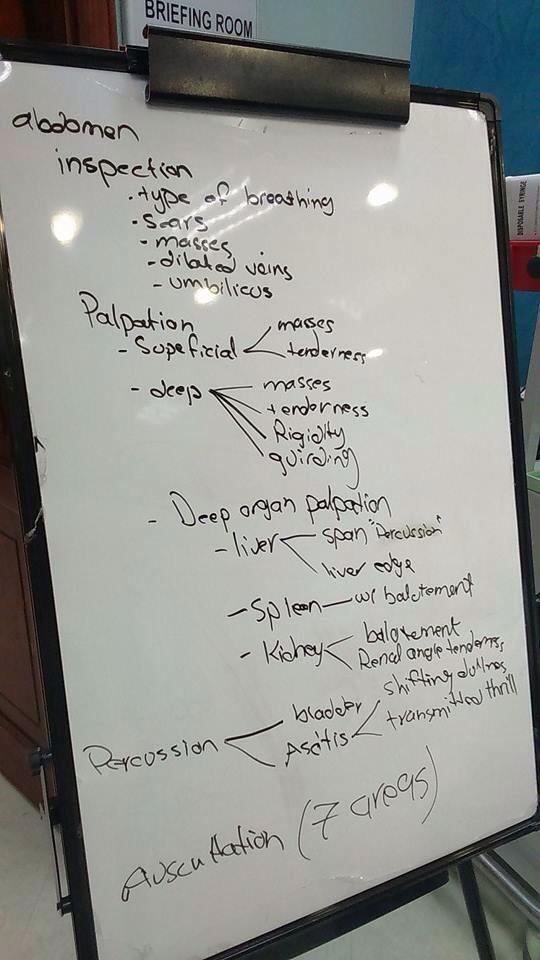 BRIEFING ROOM
DISPOSABLE SYRINGE
abdomen
inspection
• type of breathing
• Scars
- masses
- dilated veins
- umbilicus
Palpation
- Supeficial masses
tenderness
- deep masses
tenderness
Rigidity
guirding
- Deep organ palpation
- liver span "Percussion"
liver edge
- Spleen - w/ balotement
- Kidney balotement
Renal angle tenderness
Percussion bladder
Ascitis shifting dullnes
transmitted thrill
Auscultation (7 areas)